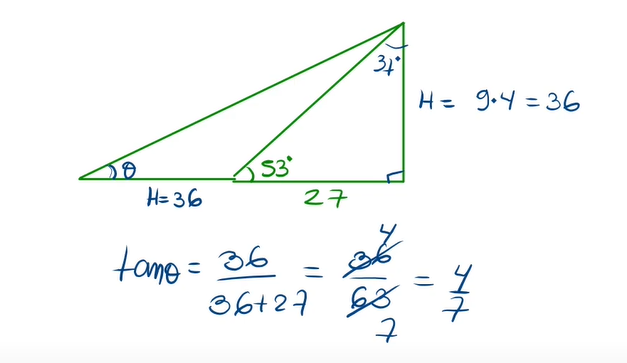 37°
H = 9·4 = 36
θ
53°
H=36
27
tanθ = 36/(36+27) = 36/63 = 4/7
4
7